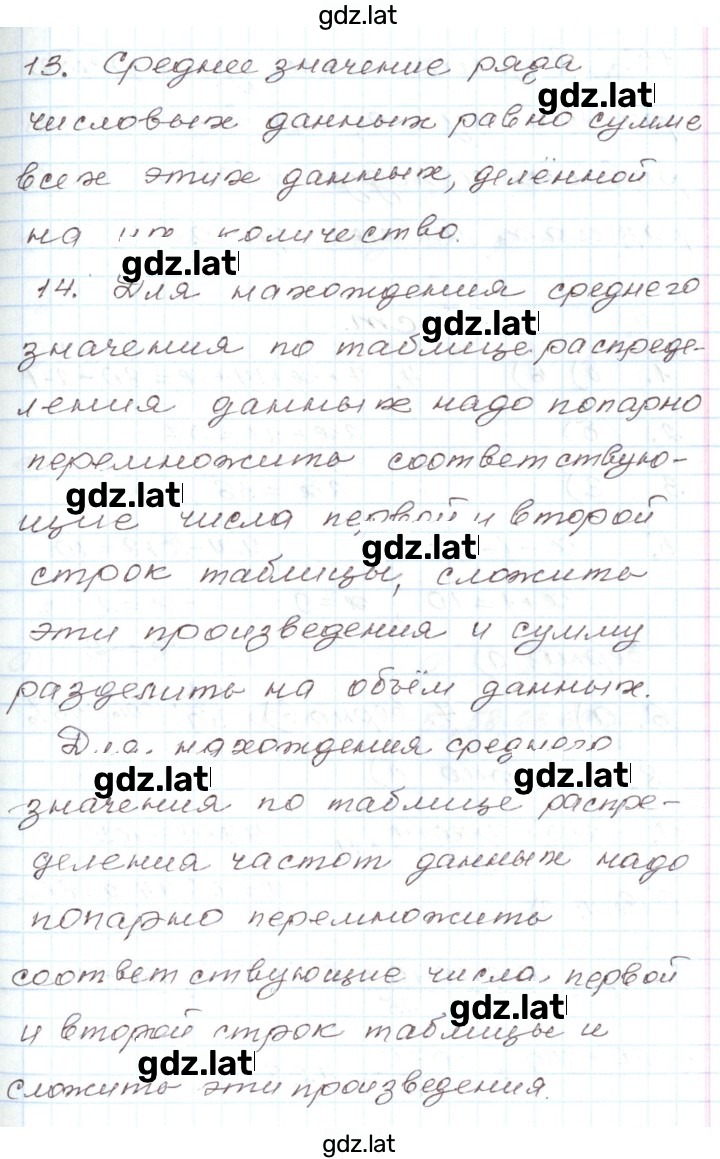 gdz.lat
13. Среднее значение ряда
gdz.lat
числовых данных равно сумме
всех этих данных, делённой
на их количество.
gdz.lat
14. Для нахождения среднего
gdz.lat
значения по таблице распреде-
ления данных надо попарно
перемножить соответствую-
gdz.lat
щие числа первой и второй
gdz.lat
строк таблицы, сложить
эти произведения и сумму
разделить на объём данных.
Для нахождения среднего
gdz.lat gdz.lat
значения по таблице распре-
деления частот данных надо
попарно перемножить
соответствующие числа первой
gdz.lat
и второй строк таблицы и
gdz.lat
сложить эти произведения.
gdz.lat